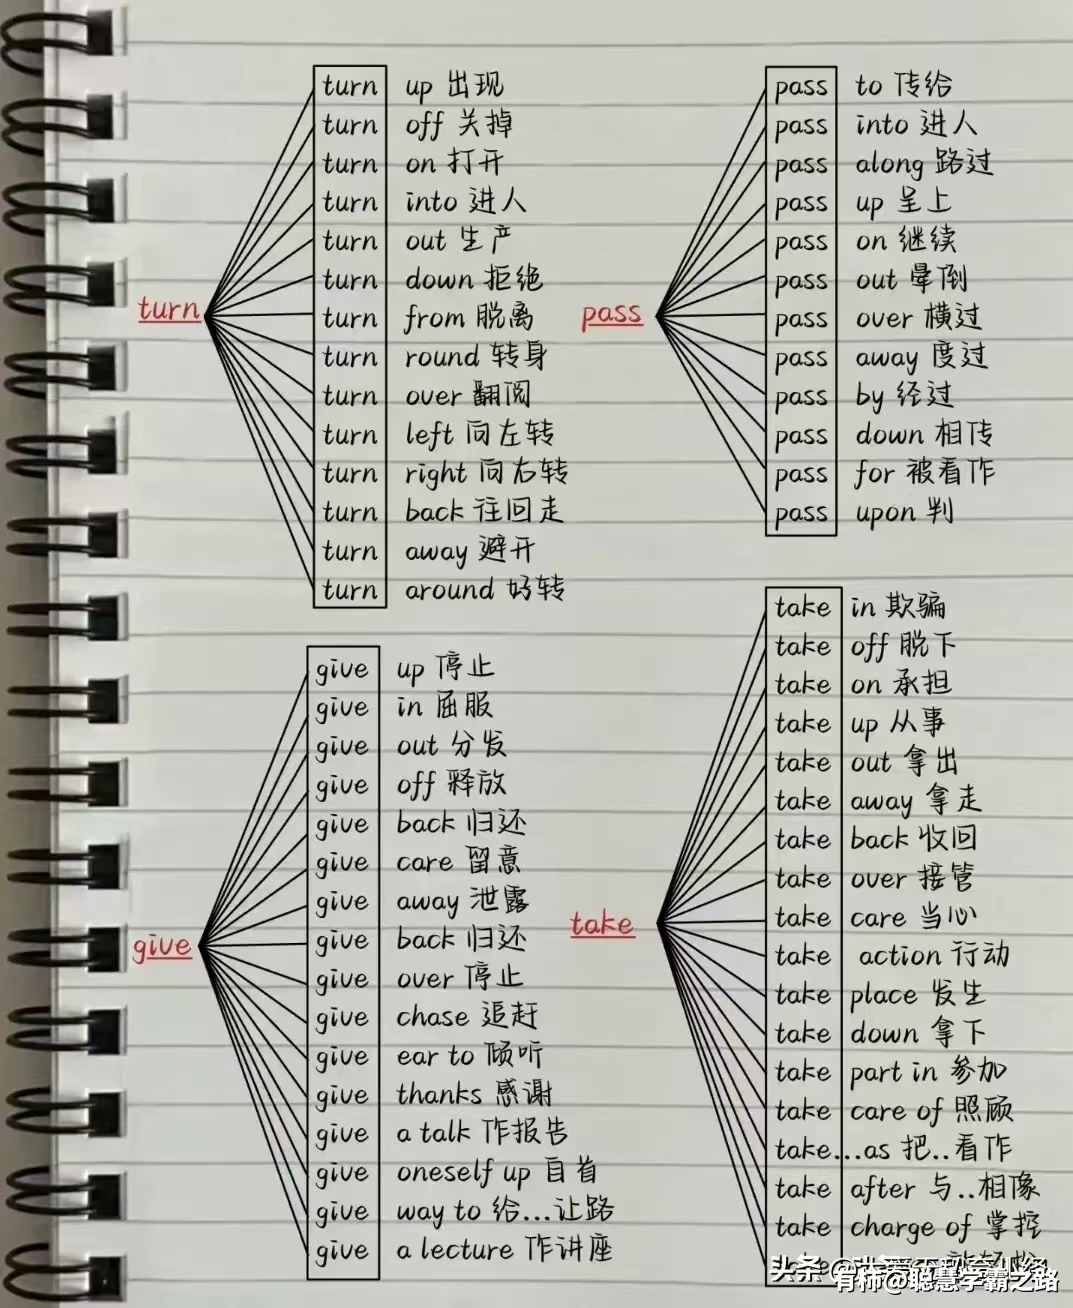 turn
turn up 出现
turn off 关掉
turn on 打开
turn into 进人
turn out 生产
turn down 拒绝
turn from 脱离
turn round 转身
turn over 翻阅
turn left 向左转
turn right 向右转
turn back 往回走
turn away 避开
turn around 好转
pass
pass to 传给
pass into 进人
pass along 路过
pass up 呈上
pass on 继续
pass out 晕倒
pass over 横过
pass away 度过
pass by 经过
pass down 相传
pass for 被看作
pass upon 判
give
give up 停止
give in 屈服
give out 分发
give off 释放
give back 归还
give care 留意
give away 泄露
give back 归还
give over 停止
give chase 追赶
give ear to 倾听
give thanks 感谢
give a talk 作报告
give oneself up 自首
give way to 给...让路
give a lecture 作讲座
take
take in 欺骗
take off 脱下
take on 承担
take up 从事
take out 拿出
take away 拿走
take back 收回
take over 接管
take care 当心
take action 行动
take place 发生
take down 拿下
take part in 参加
take care of 照顾
take...as 把..看作
take after 与..相像
take charge of 掌控
头条@
有柿@聪慧学霸之路